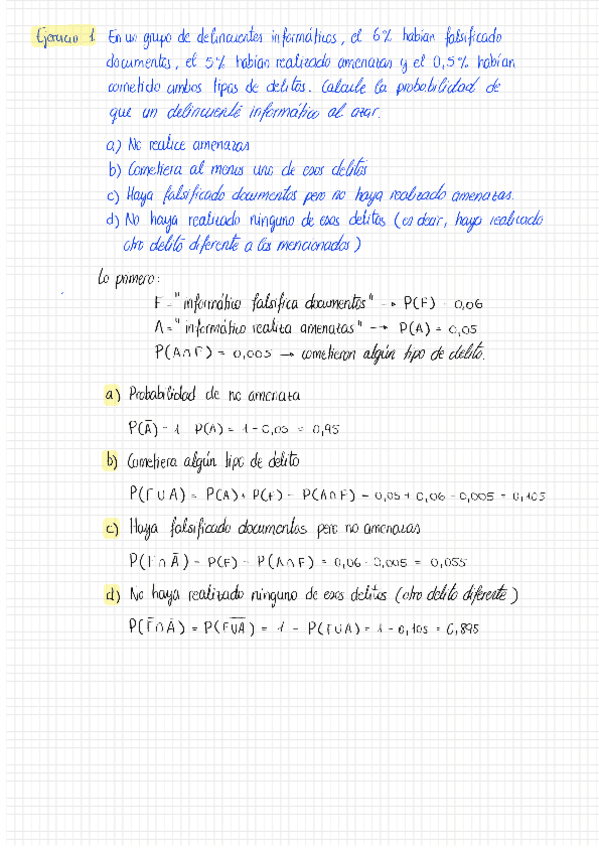 Ejercicio 1 En un grupo de delincuentes informáticos, el 6% habían falsificado
documentos, el 5% habían realizado amenazas y el 0,5% habían
cometido ambos tipos de delitos. Calcule la probabilidad de
que un delincuente informático al azar.
a) No realice amenazas
b) Cometiera al menos uno de esos delitos
c) Haya falsificado documentos pero no haya realizado amenazas.
d) No haya realizado ninguno de esos delitos (es decir, haya realizado
otro delito diferente a los mencionados)
Lo primero:
F = "informático falsifica documentos" → P(F) = 0,06
A = "informático realiza amenazas" → P(A) = 0,05
P(A∩F) = 0,005 → cometieron algún tipo de delito.
a) Probabilidad de no amenaza
P(Ā) = 1 - P(A) = 1 - 0,05 = 0,95
b) Cometiera algún tipo de delito
P(F∪A) = P(A) + P(F) - P(A∩F) = 0,05 + 0,06 - 0,005 = 0,105
c) Haya falsificado documentos pero no amenazas
P(F∩Ā) = P(F) - P(A∩F) = 0,06 - 0,005 = 0,055
d) No haya realizado ninguno de esos delitos (otro delito diferente)
P(F̄∩Ā) = P(F̅∪̅A̅) = 1 - P(F∪A) = 1 - 0,105 = 0,895